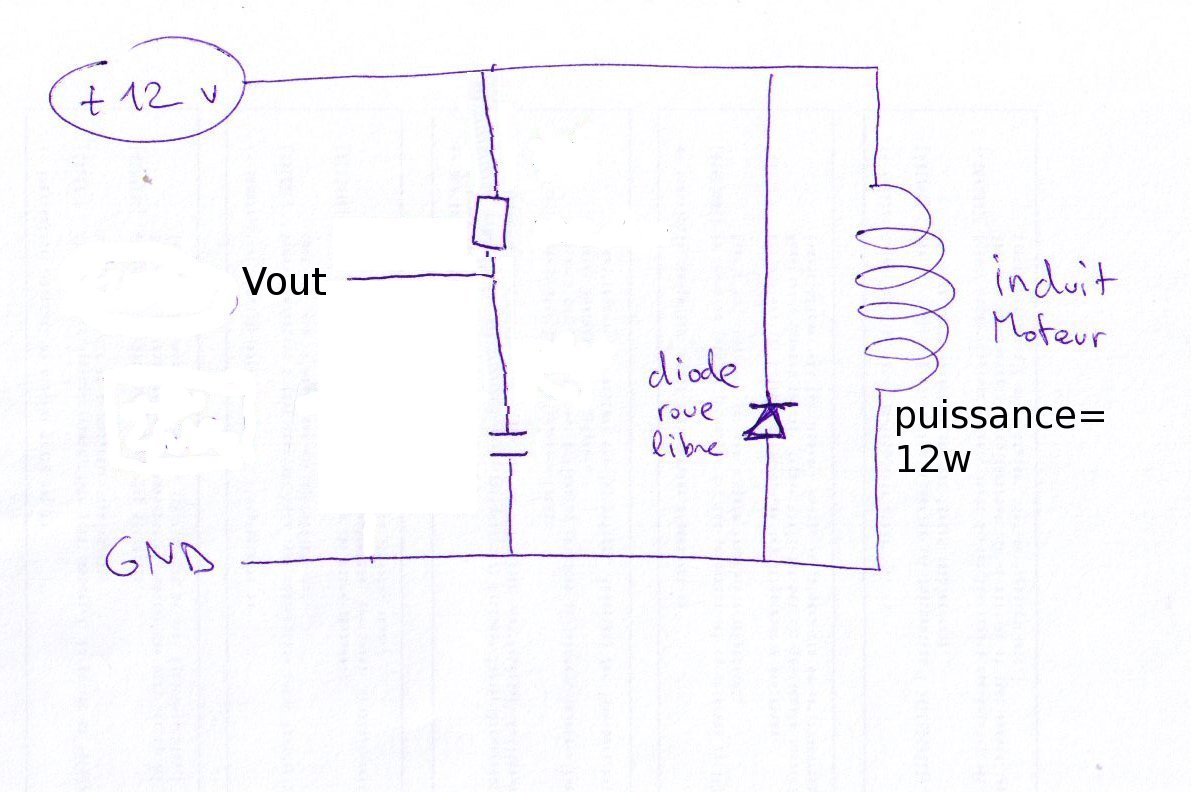 + 12 v
Vout
induit
Moteur
diode
roue
libre
puissance=
12w
GND